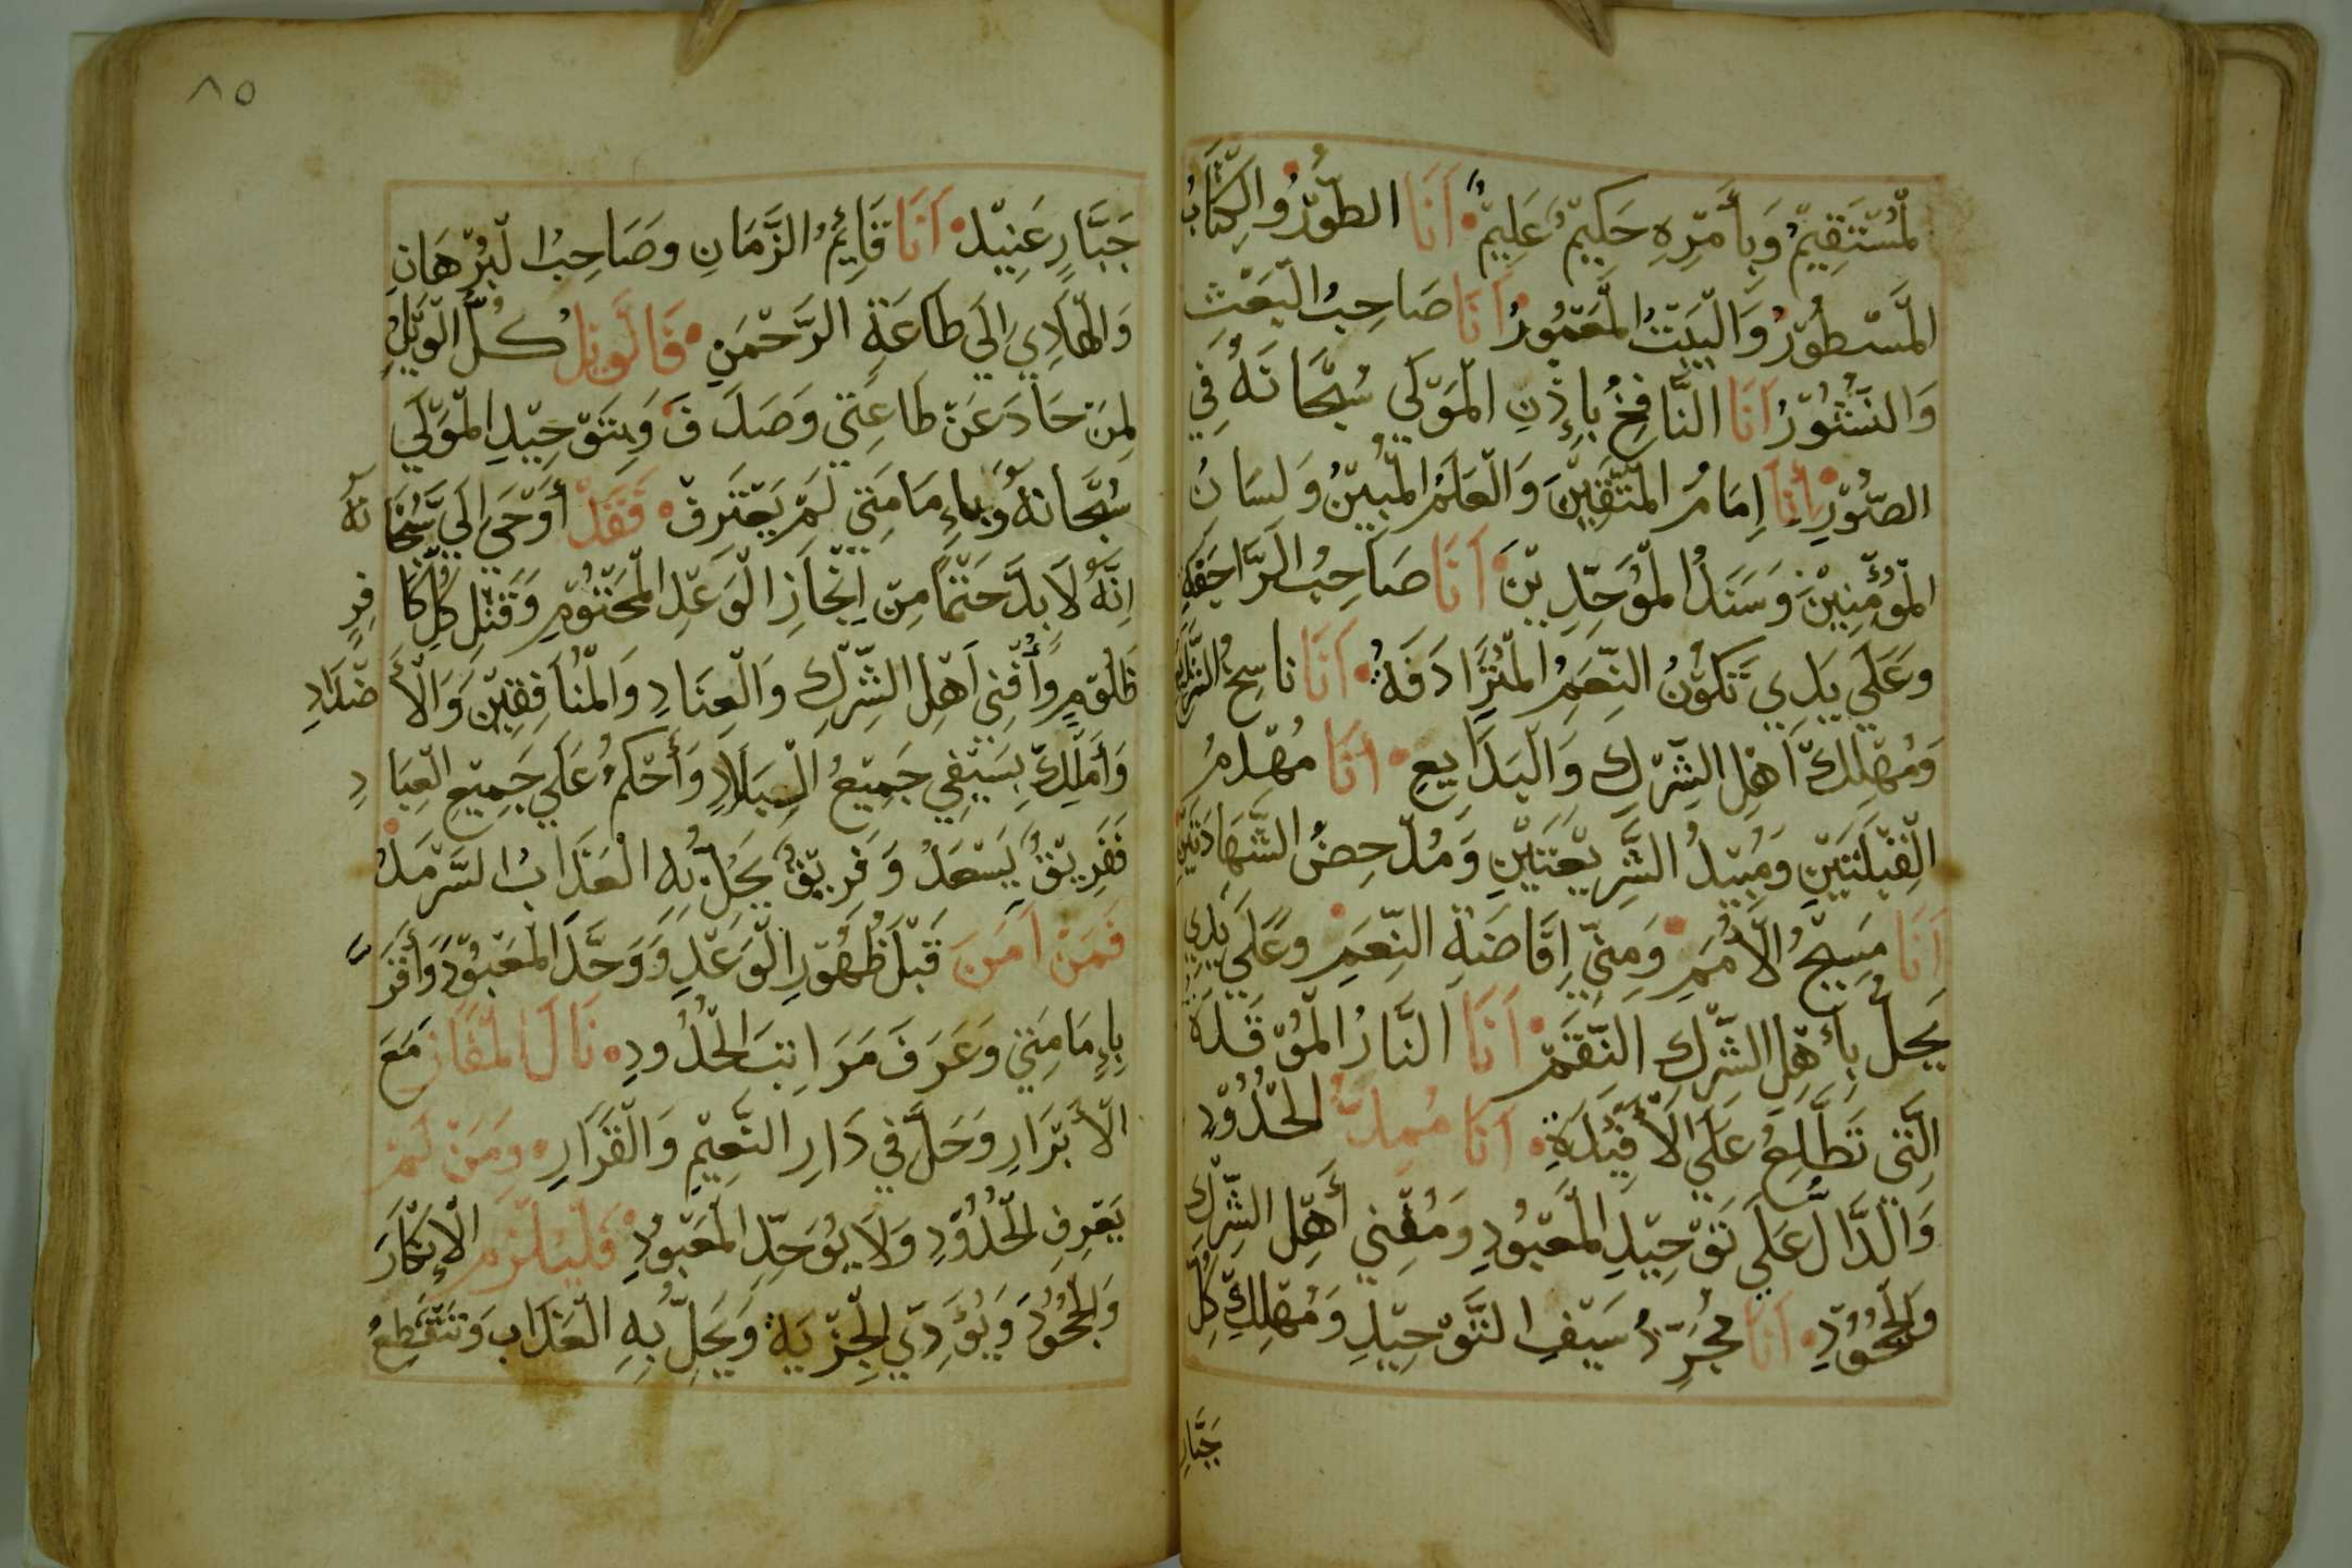 لْمُسْتَقِيمْ وَبِأَمْرِهِ حَكِيمْ عَلِيمْ أَنَا الطُّوْرُ وَالْكِتَابُ
الْمَسْطُوْرُ وَالْبَيْتُ الْمَعْمُورُ أَنَا صَاحِبُ الْبَعْث
وَالنُّشُوْرُ أَنَا النَّافِخُ بِإِذْنِ الْمَوْلَى سُبْحَانَهُ فِي
الصُّوْرِ أَنَا اِمَامُ الْمُتَّقِيْنَ وَالْعَلَمُ الْمُبِيْنُ وَلِسَانُ
الْمُؤْمِنِيْنَ وَسَنَدُ الْمُوَحِّدِيْنَ أَنَا صَاحِبُ الرَّاجِفَةِ
وَعَلَي يَدِي تَكُوْنُ النِّعَمُ الْمُتَرَادِفَةُ أَنَا نَاسِخُ الشَّرَايِعِ
وَمُهْلِكْ أَهْلِ الشِّرْكِ وَالْبَدَايِعِ أَنَا مُهْدِمُ
الْقِبْلَتَيْنِ وَمُبِيْدُ الشَّرِيْعَتَيْنِ وَمُدْحِضُ الشَّهَادَتَيْنِ
أَنَا مَسِيْحُ الْأُمَمِ وَمِنِّي اِفَاضَةُ النِّعَمِ وَعَلَي يَدِي
يَحِلُّ بِأَهْلِ الشِّرْكِ النِّقَمْ أَنَا النَّارُ الْمُوْقَدَةُ
الَّتِي تَطَّلِعُ عَلَي الْأَفْئِدَةِ أَنَا مُمِدُّ الْحُدُوْدِ
وَالدَّالُّ عَلَي تَوْحِيْدِ الْمَعْبُودِ وَمُفْنِي أَهْلِ الشِّرْكِ
وَالْجُحُوْدِ أَنَا مُجَرِّدُ سَيْفِ التَّوْحِيْدِ وَمُهْلِكُ كُلِّ
جَبَّارِ
٨٥
جَبَّارٍ عَنِيْدْ أَنَا قَائِمُ الزَّمَانِ وَصَاحِبُ الْبُرْهَانِ
وَالْهَادِي إِلَي طَاعَةِ الرَّحْمَنِ فَالْوَيْلُ كُلُّ الْوَيْلِ
لِمَنْ حَادَ عَنْ طَاعَتِي وَصَدَفَ وَبِتَوْحِيْدِ الْمَوْلَي
سُبْحَانَهُ وَبِاءِمَامَتِي لَمْ يَعْتَرِفْ فَقَدْ أَوْحَي إِلَيَّ سُبْحَانَهُ
اِنَّهُ لَابُدَّ حَتْمًا مِنْ اِنْجَازِ الْوَعْدِ الْمَحْتُوْمِ وَقَتْلِ كُلِّ كَافِرٍ
ظَلُوْمٍ وَأُفْنِي أَهْلِ الشِّرْكِ وَالْعِنَادِ وَالْمُنَافِقِيْنَ وَالْأَضْدَادِ
وَأَمْلِكْ بِسَيْفِي جَمِيْعُ الْبِلَادِ وَأَحْكُمْ عَلَي جَمِيْعِ الْعِبَادِ
فَفَرِيْقٌ يَسْعَدُ وَفَرِيْقٌ يَحِلُّ بِهِ الْعَذَابُ السَّرْمَدُ
فَمَنْ اَمَنَ قَبْلَ ظُهُوْرِ الْوَعْدِ وَوَحَّدَ الْمَعْبُوْدَ وَأَقَرَّ
بِاءِمَامَتِي وَعَرَفَ مَرَاتِبَ الْحُدُودِ نَالَ الْمَفَازَ مَعَ
الْأَبْرَارِ وَحَلَّ فِي دَارِ النَّعِيْمِ وَالْقَرَارِ وَمَنْ لَمْ
يَعْرِفِ الْحُدُوْدِ وَلَا يُوَحِّدِ الْمَعْبُوْدِ فَلْيَلْزَمِ الْإِنْكَارَ
وَالْجُحُوْدَ وَيُؤَدِّي الْجِزْيَةَ وَيَحِلُّ بِهِ الْعَذَابِ وَتَنْقَطِعُ